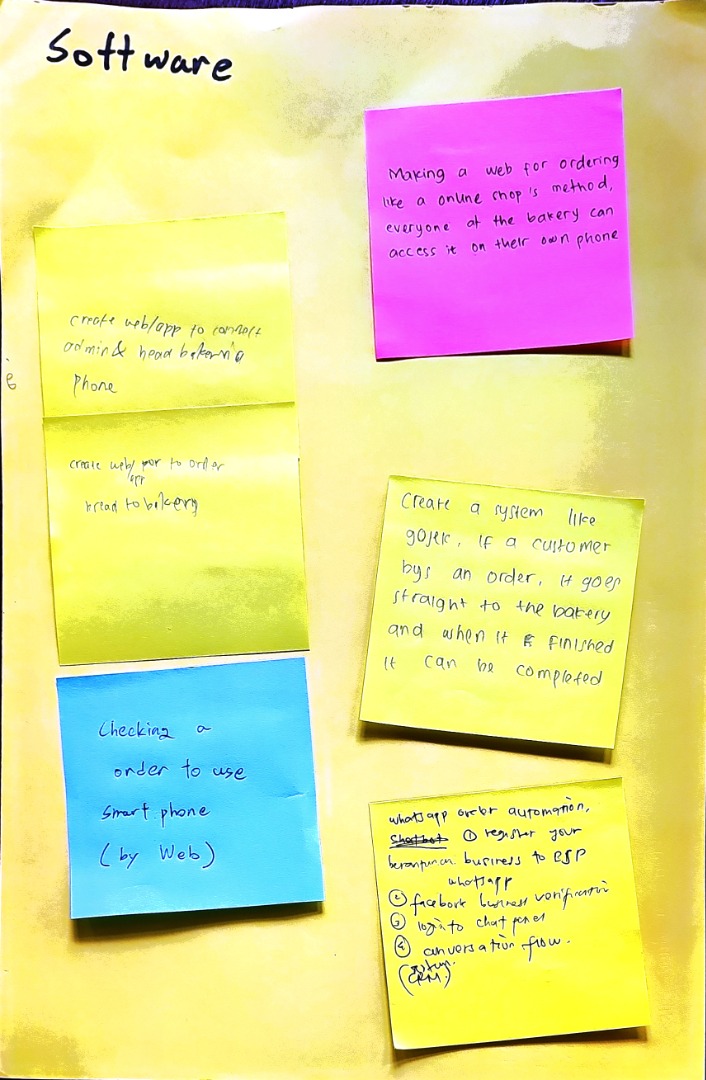 Software
Making a web for ordering
like a online shop's method,
everyone at the bakery can
access it on their own phone
create web/app to connect
admin & head baker's
Phone
create web/ for to order
app
bread to bakery
Create a system like
gojek, If a customer
bys an order, It goes
straight to the bakery
and when it is finished
It can be completed
Checking a
order to use
Smart phone
(by Web)
whatsapp order automation,
① register your
business to BSP
whatsapp
② facebook business verification
③ login to chat panel
④ conversation flow.
(CRM)